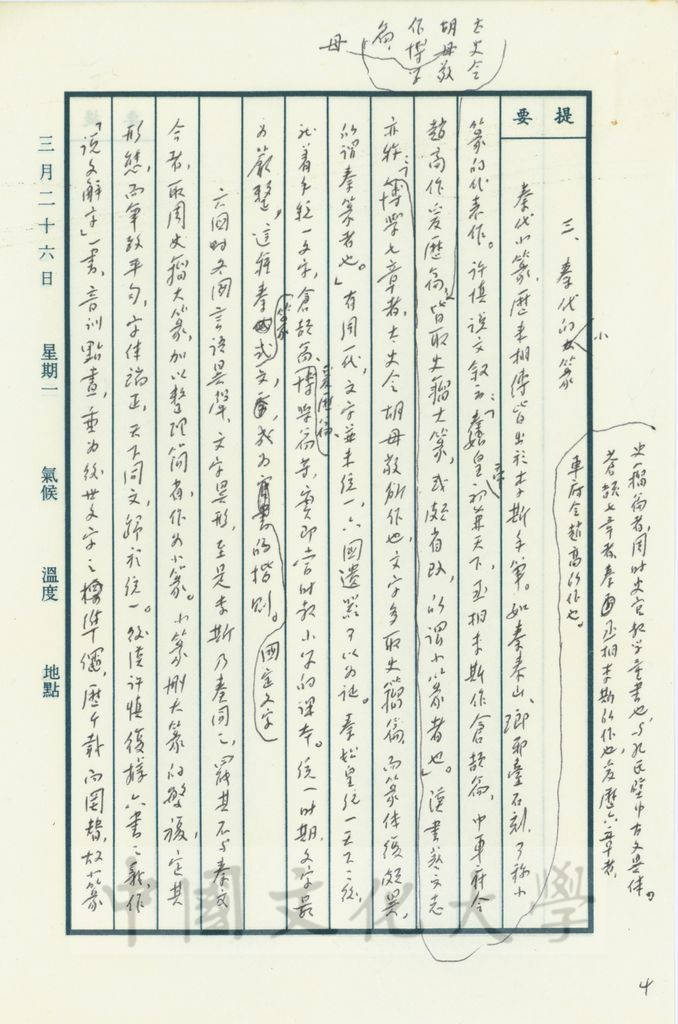 太史令
胡母敬
作博學
篇,
母
史籀篇者,周時史官教學童書也,与孔氏壁中古文異体。
蒼頡七章者,秦丞相李斯所作也,爰歷六章者,
車府令趙高所作也。
提要
三、秦代的小篆
秦代小篆,歷來相傳皆出於李斯手筆。如秦泰山、瑯邪臺石刻,可称小
篆的代表作。許慎說文敘云:「秦始皇初兼天下,丞相李斯作倉頡篇,中車府令
趙高作爰歷篇,皆取史籀大篆,或頗省改,所謂小篆者也」。漢書藝文志
亦称:「博學七章者,太史令胡母敬所作也,文字多取史籀篇,而篆体復頗異,
所謂秦篆者也。」有周一代,文字並未統一,六國遺器可以為证。秦始皇統一天下之後,
就着手統一文字,倉頡篇、爰歷篇、博學篇等,實即當時教小學的課本。統一時期,文字最
為嚴整,這種秦篆式文字,或為國定文字的楷則。
六國時各國言語異聲,文字異形,至是李斯乃奏同之,罷其不与秦文
合者,取周史籀大篆,加以整理簡省作為小篆。小篆刪大篆的繁複,定其
形態,而筆致平勻,字体端正,天下同文,歸於統一。後漢許慎復據六書之義,作
「說文解字」一書,音訓點畫,垂為後世文字之標準,歷千載而罔替,故小篆
三月二十六日 星期一 氣候 溫度 地點
4
中國文化大學